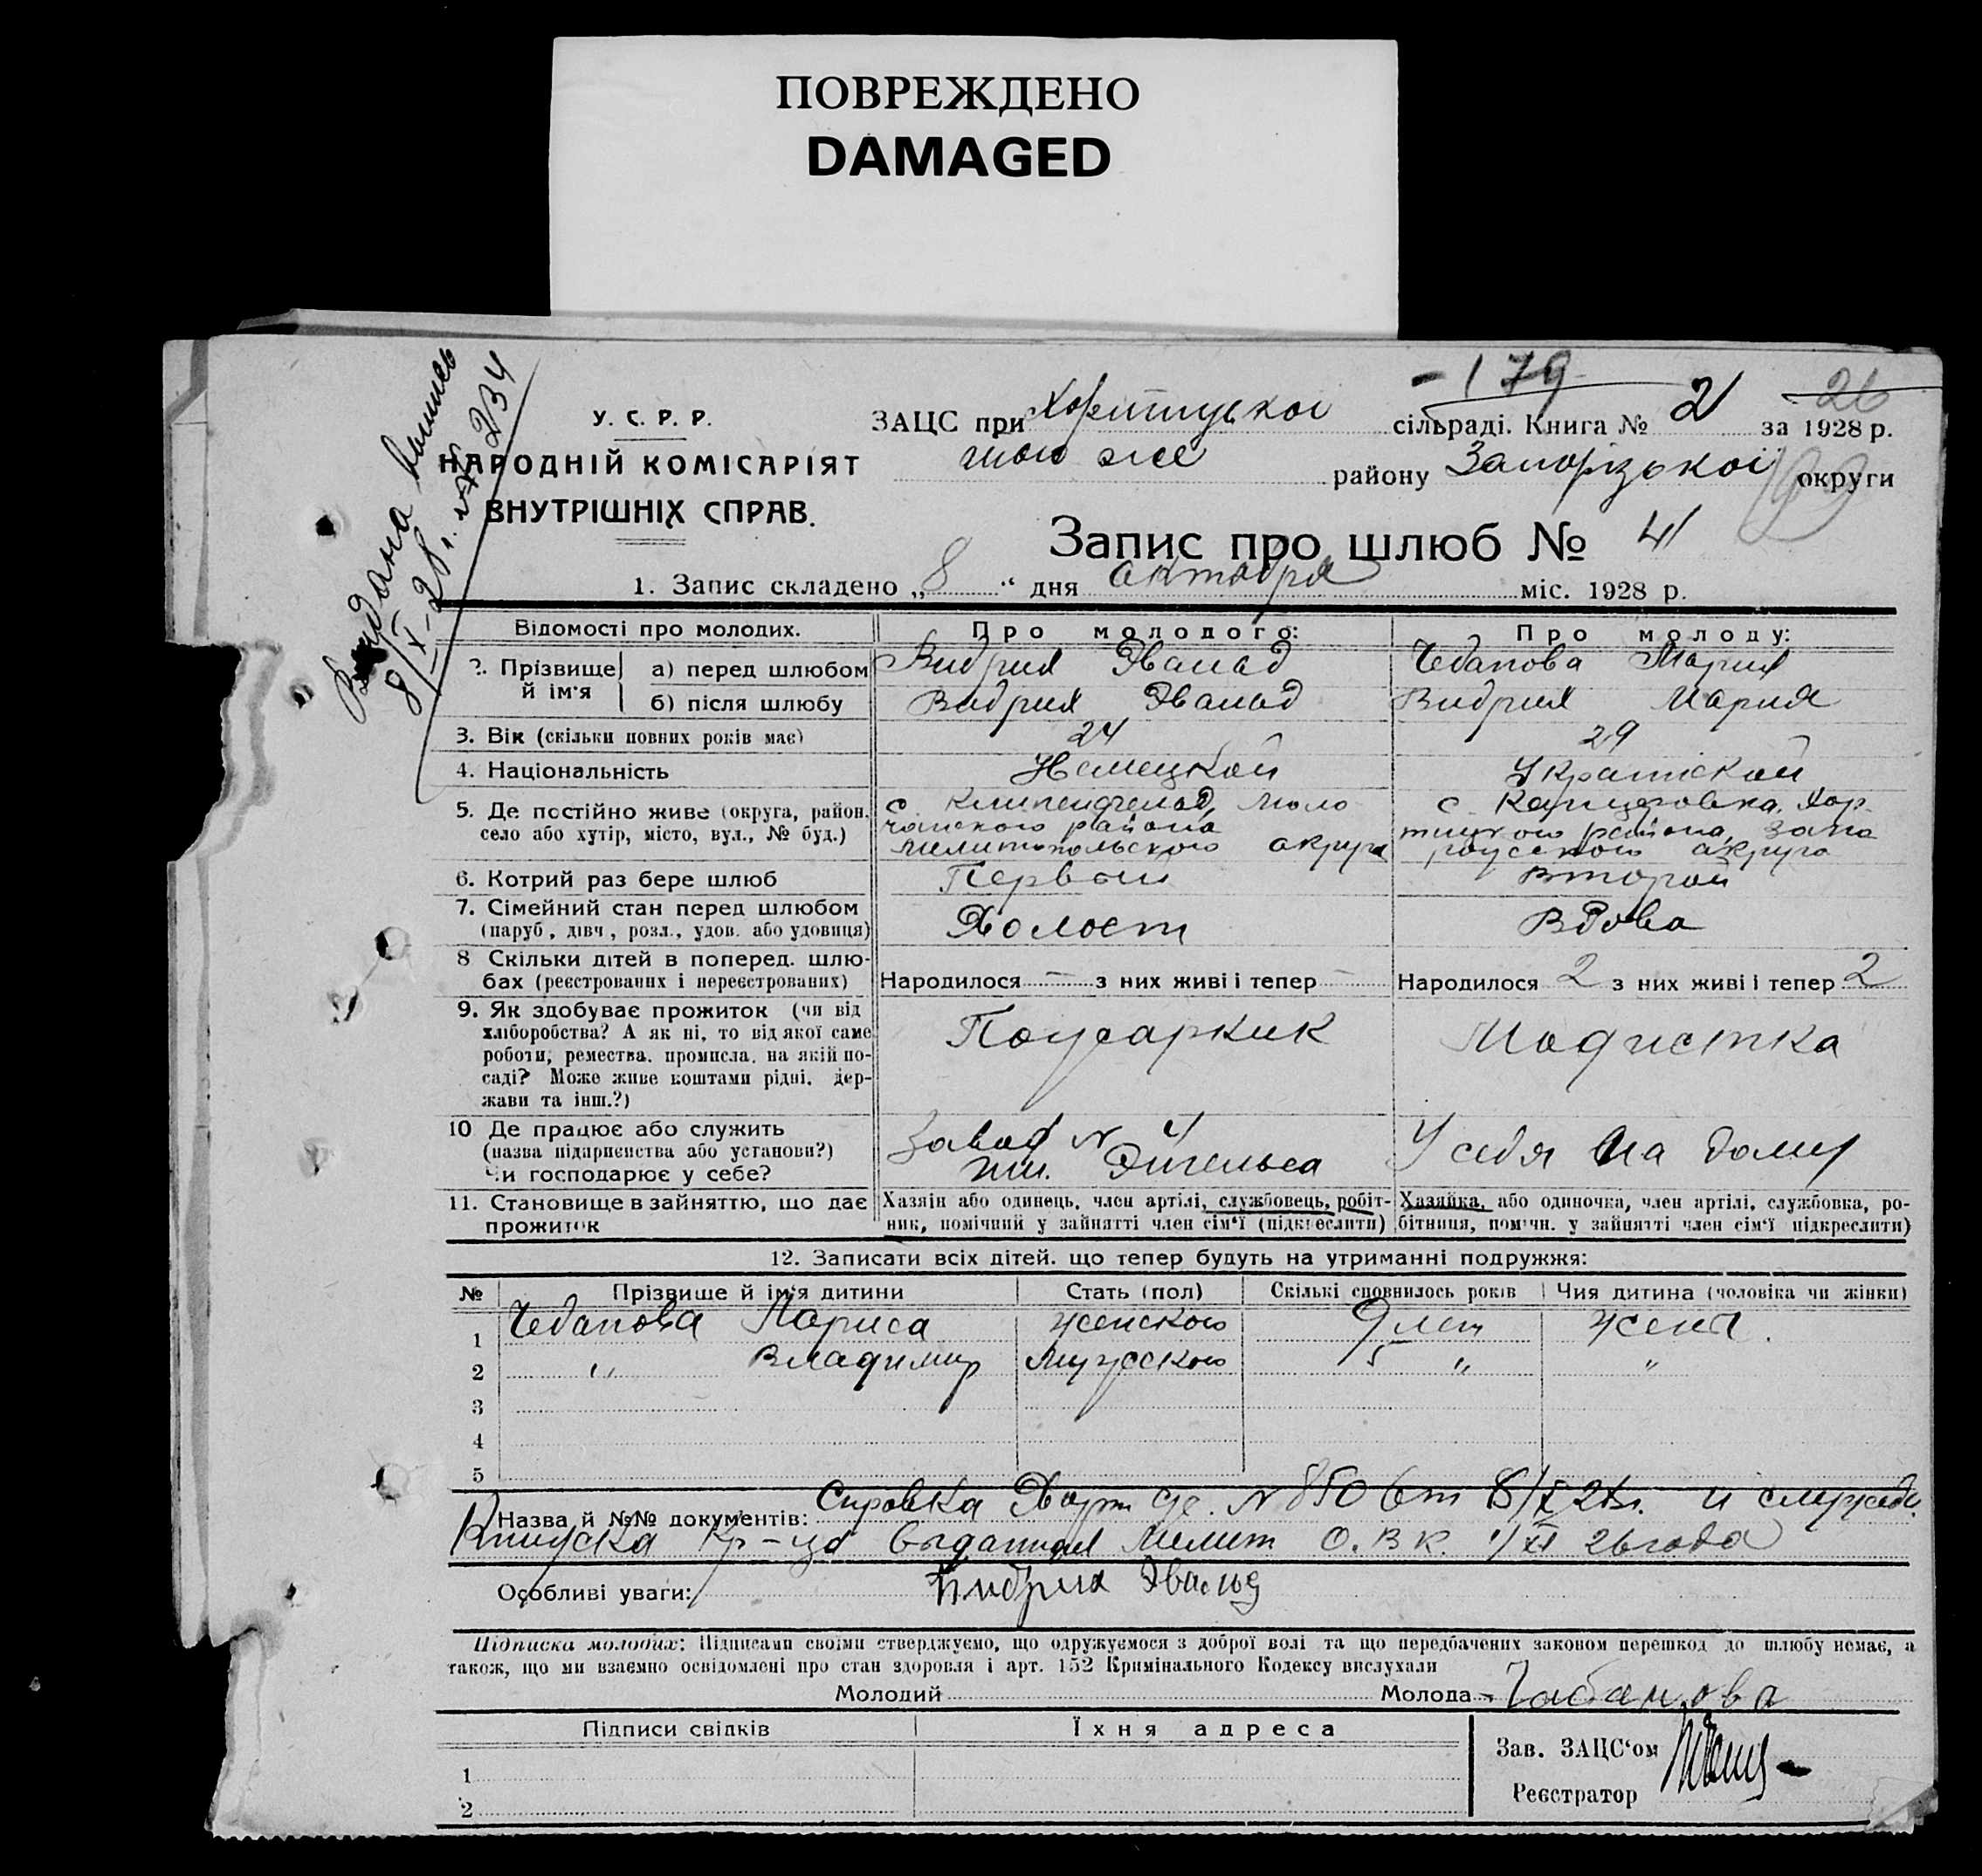 ПОВРЕЖДЕНО
DAMAGED
-179
26
Выдана выпись
8/X-28 г. № 234
У. С. Р. Р.
НАРОДНІЙ КОМІСАРІЯТ
ВНУТРІШНІХ СПРАВ.
ЗАЦС при Хортицької сільраді. Книга № 2 за 1928 р.
того же району Запорізької округи
Запис про шлюб № 41
1. Запис складено „ 8 “ дня октября міс. 1928 р.
Відомості про молодих. Про молодого: Про молоду:
2. Прізвище й ім'я а) перед шлюбом Эвальд Чебанова Мария
б) після шлюбу Эвальд Мария
3. Вік (скільки повних років має) 24 29
4. Національність Немецкой Украинской
5. Де постійно живе (округа, район, село або хутір, місто, вул., № буд.) с. Моло
чанского района
мелитопольского округа
с. Хор
тицкого района, Запо
рожского округа
6. Котрий раз бере шлюб Первый Второй
7. Сімейний стан перед шлюбом (паруб., дівч., розл., удов. або удовиця) Холост Вдова
8 Скільки дітей в поперед. шлюбах (реєстрованих і нереєстрованих) Народилося — з них живі і тепер — Народилося 2 з них живі і тепер 2
9. Як здобуває прожиток (чи від хліборобства? А як ні, то від якої саме роботи, ремества, промисла, на якій посаді? Може живе коштами рідні, держави та інш.?) Модистка
10 Де працює або служить (назва підприємства або установи?) Чи господарює у себе? Завод № 4
им. Энгельса
У себя на дому
11. Становище в зайняттю, що дає прожиток Хазяїн або одинець, член артілі, службовець, робітник, помічний у зайнятті член сім'ї (підкреслити) Хазяйка, або одиночка, член артілі, службовка, робітниця, помічн. у зайнятті член сім'ї підкреслити)
12. Записати всіх дітей, що тепер будуть на утриманні подружжя:
№ Прізвище й ім'я дитини Стать (пол) Скількі сповнилось років Чия дитина (чоловіка чи жінки)
1 Чебанова Лариса женского 9 лет жены.
2 " Владимир Мужского 5 " "
3
4
5
Назва й №№ документів: Справка № 850 от 8/X 28 г. и служебн.
Книжка выданная Мелит О.В.К. 1/XI 26 года
Особливі уваги: Эвальд
Підписка молодих: Підписами своїми стверджуємо, що одружуємося з доброї волі та що передбачених законом перешкод до шлюбу немає, а
також, що ми взаємно освідомлені про стан здоровля і арт. 152 Кримінального Кодексу вислухали
Молодий Молода Чабанова
Підписи свідків Їхня адреса
Зав. ЗАЦС'ом
1
Реєстратор
2